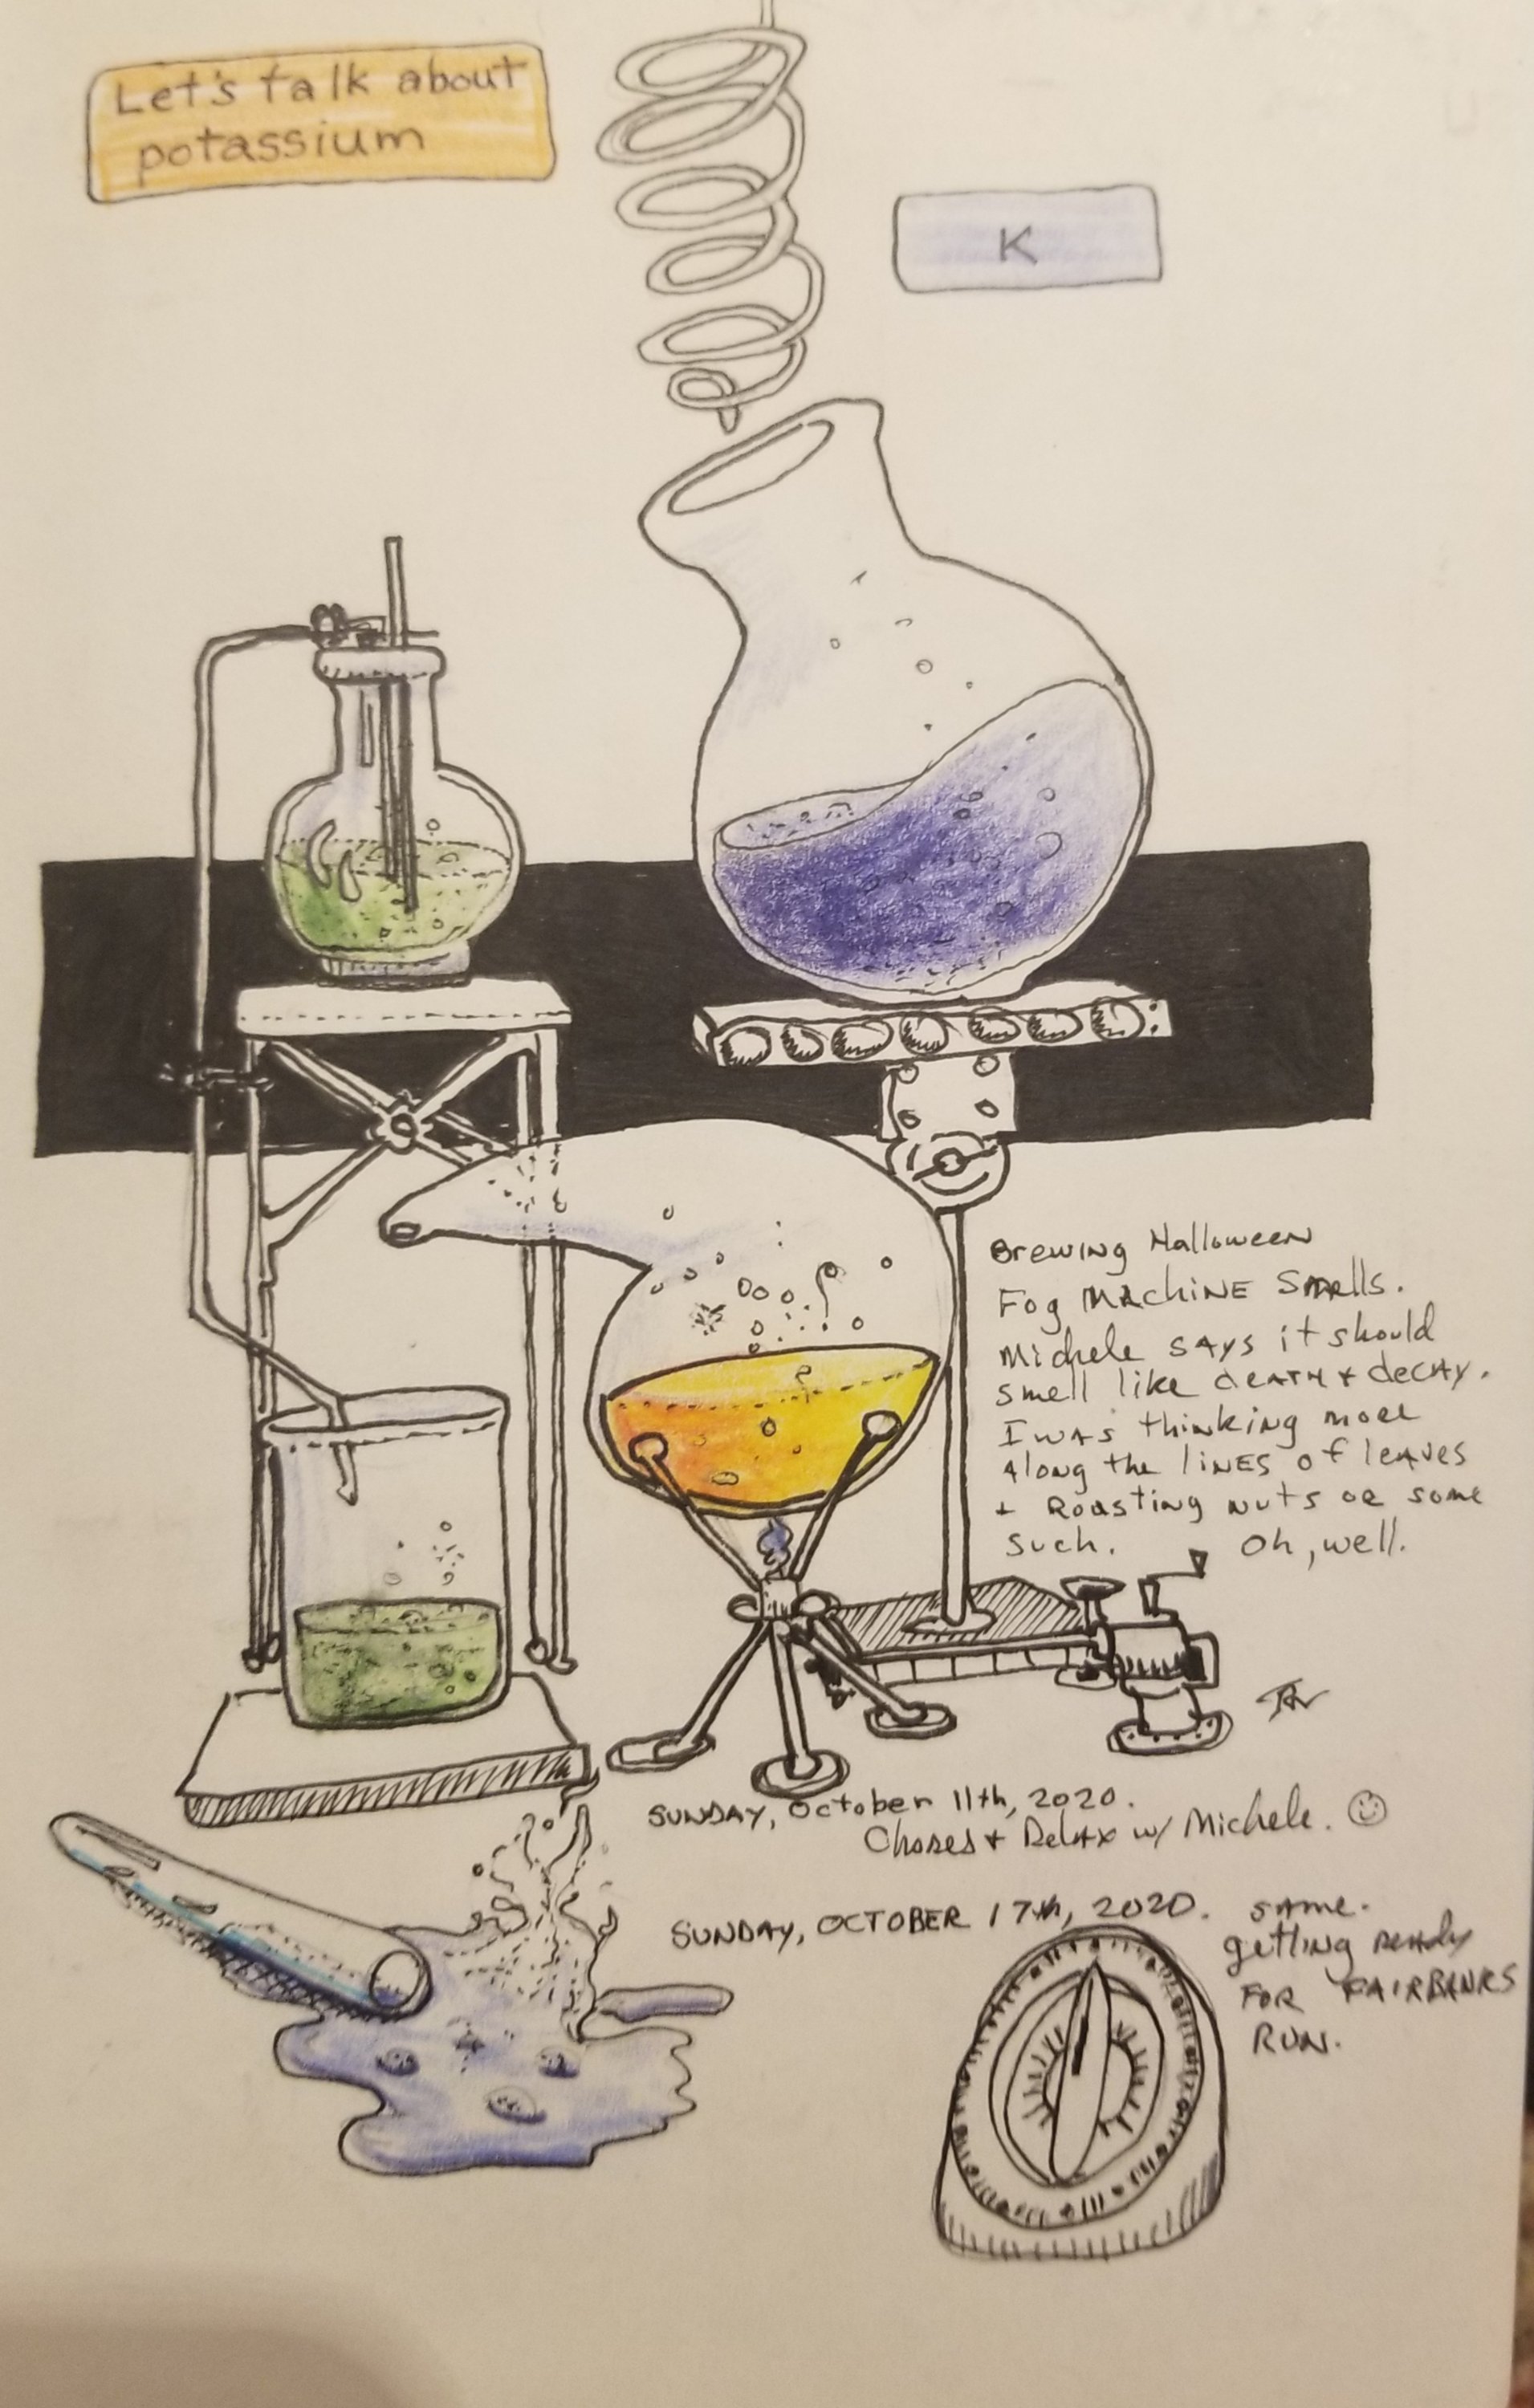 Let's talk about
potassium
K
Brewing Halloween
Fog Machine Smells.
Michele says it should
smell like death + decay.
I was thinking more
along the lines of leaves
+ Roasting nuts or some
such. Oh, well.
Sunday, October 11th, 2020.
Chores + Relax w/ Michele. ☺
Sunday, October 17th, 2020. Same.
getting ready
for Fairbanks
Run.